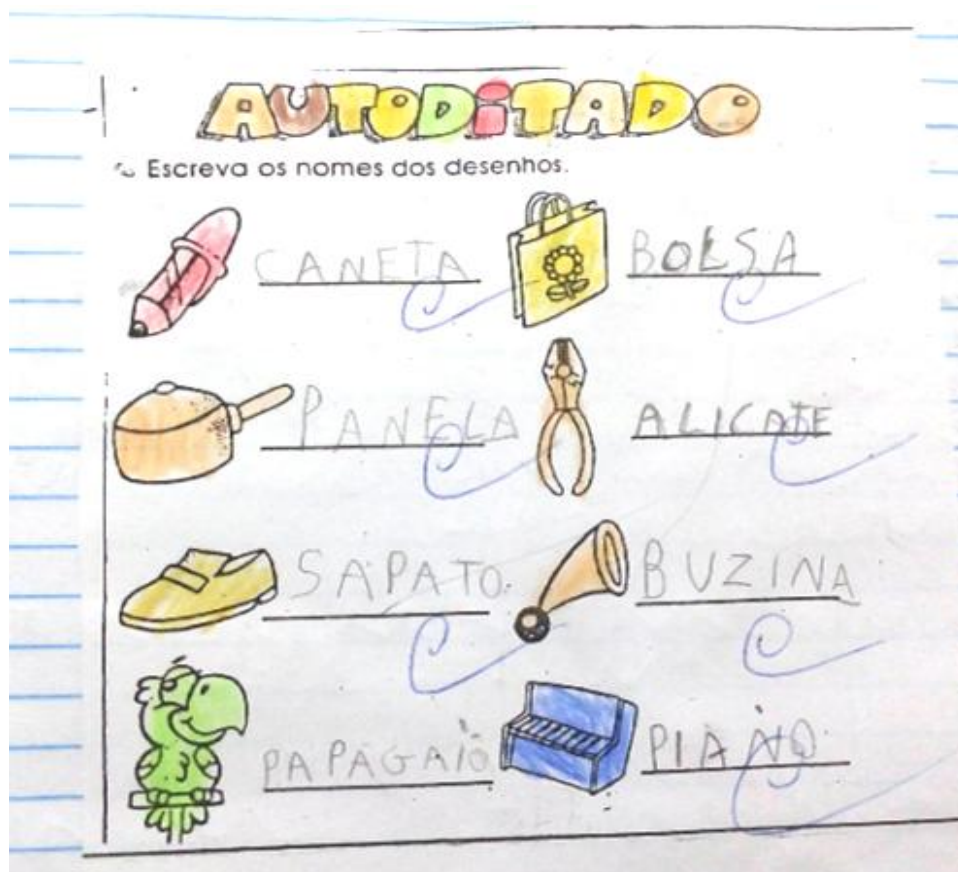 AUTODITADO
Escreva os nomes dos desenhos.
CANETA BOLSA
PANELA ALICATE
SAPATO BUZINA
PAPAGAIO PIANO